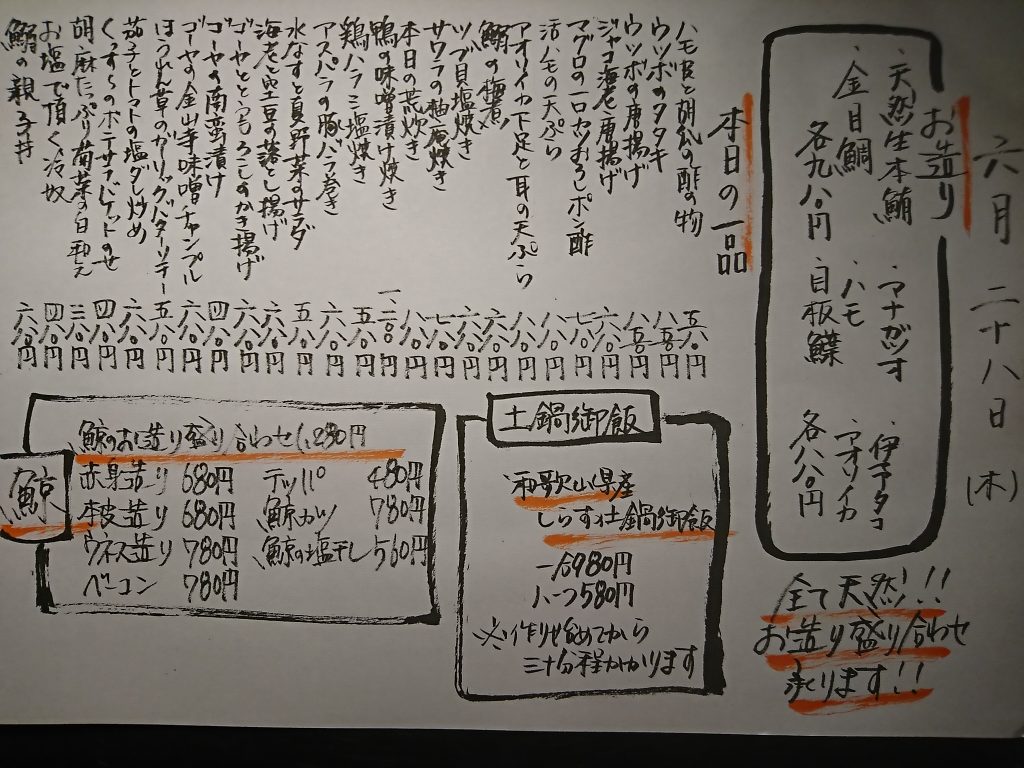 六月二十八日(木)
お造り
・天然生本鮪
・金目鯛
各九八〇円
・マナガツオ
・ハモ
・目板鰈
・伊予タコ
・アオリイカ
各八八〇円
全て天然!!
お造り盛り合わせ
承ります!!
本日の一品
ハモ皮と胡瓜の酢の物 五八〇円
ウツボのタタキ 八五〇円
ウツボの唐揚げ 八五〇円
ジャコ海老唐揚げ 六八〇円
マグロの一口カツおろしポン酢 七八〇円
活ハモの天ぷら 八八〇円
アオリイカ下足と耳の天ぷら 八八〇円
鰯の梅煮 六八〇円
ツブ貝塩焼き 六八〇円
サワラの柚庵焼き 七八〇円
本日の荒炊き 八八〇円
鴨の味噌漬け焼き 一、二八〇円
鶏ハラミ塩焼き 五八〇円
アスパラの豚バラ巻き 六八〇円
水なすと夏野菜のサラダ 五八〇円
海老と空豆の落とし揚げ 六八〇円
ゴーヤととうもろこしのかき揚げ 六八〇円
ゴーヤの南蛮漬け 六八〇円
ゴーヤの金山寺味噌チャンプル 六八〇円
ほうれん草のガーリックバターソテー 五八〇円
茄子とトマトの塩ダレ炒め 六八〇円
ポテサラバゲットのせ 四八〇円
胡麻たっぷり菊菜の白和え 三八〇円
お塩で頂く冷奴 四八〇円
鰯の親子丼 六八〇円
土鍋御飯
和歌山県産
しらす土鍋御飯
一合980円
ハーフ580円
※作り始めてから
三十分程かかります
鯨
鯨のお造り盛り合わせ1,280円
赤身造り 680円
本皮造り 680円
ウネス造り 780円
ベーコン 780円
テッパ 480円
鯨カツ 780円
鯨の塩干し 560円